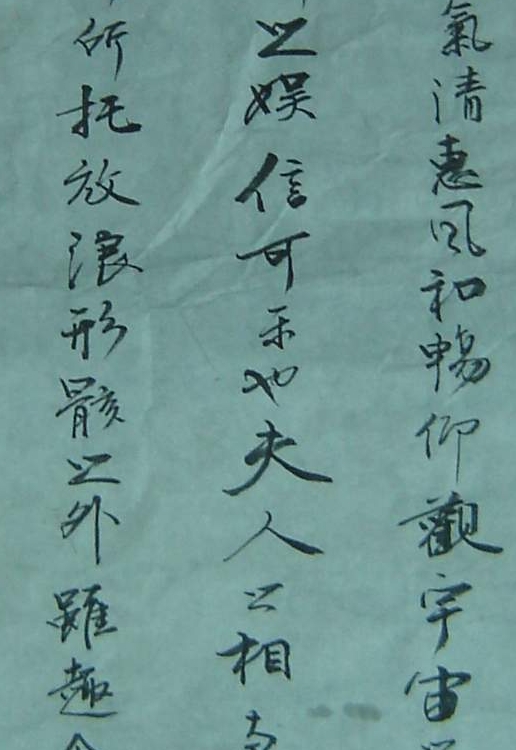 氣清惠風和暢仰觀宇宙
之娱信可乐也夫人之相
所托放浪形骸之外雖趣